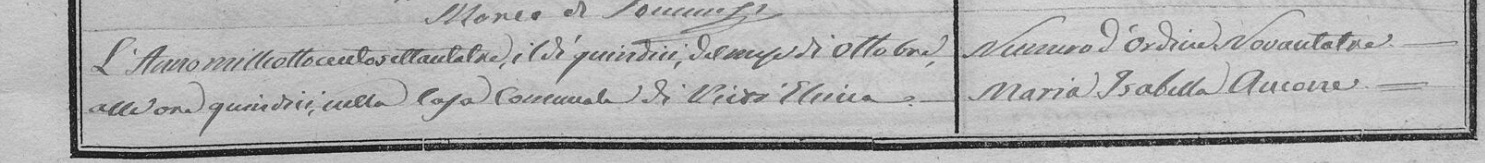 Marco di Tommaso
L'Anno milleottocentosettantatre, il dì quindici, del mese di Ottobre,
alle ore quindici, nella Casa Comunale di
Numero d'Ordine Novantatre
Maria Isabella